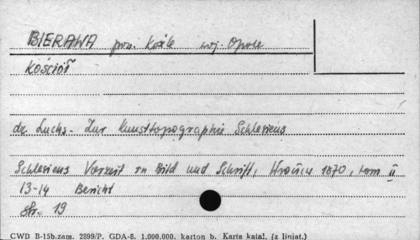 BIERAWA pow. Koźle woj. Opole
KOŚCIÓŁ
dr. Luchs - Zur Kunsttopographie Schlesiens
Schlesiens Vorzeit in Bild und Schrift, Wrocław 1870, tom II
13-14 Bericht
str. 19
CWD B-15b.zam. 2899/P. GDA-8. 1.000.000. karton b. Karta katal. (z liniat.)